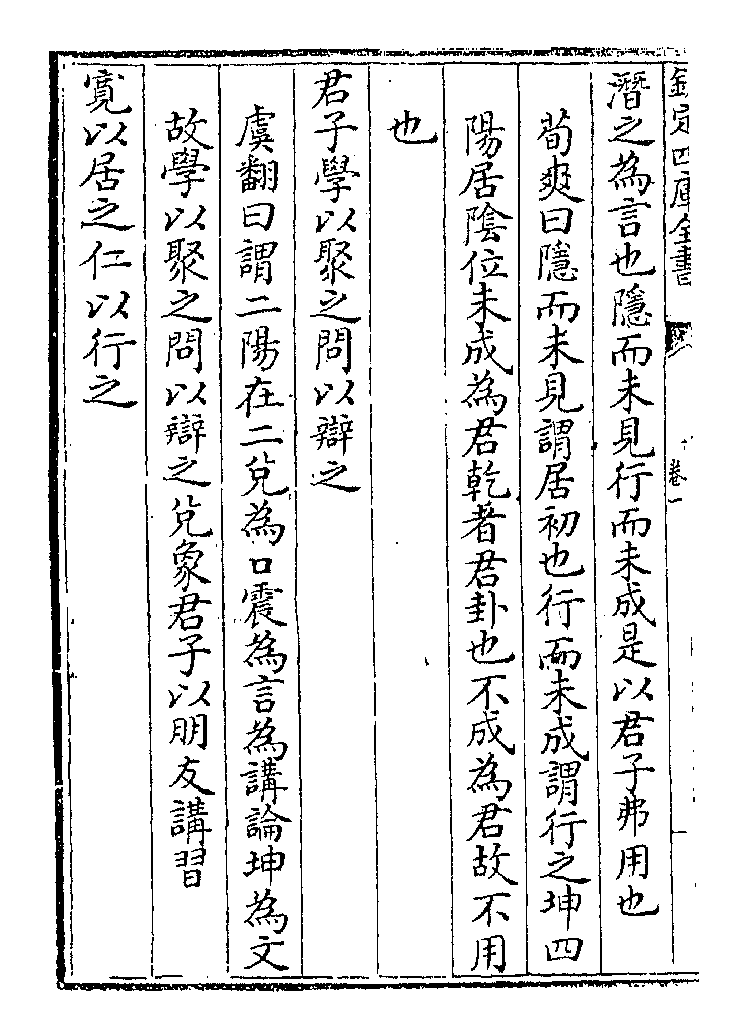 欽定四庫全書
卷一
潛之為言也隱而未見行而未成是以君子弗用也
荀爽曰隱而未見謂居初也行而未成謂行之坤四
陽居陰位未成為君乾者君卦也不成為君故不用
也
君子學以聚之問以辯之
虞翻曰謂二陽在二兌為口震為言為講論坤為文
故學以聚之問以辯之兌象君子以朋友講習
寬以居之仁以行之